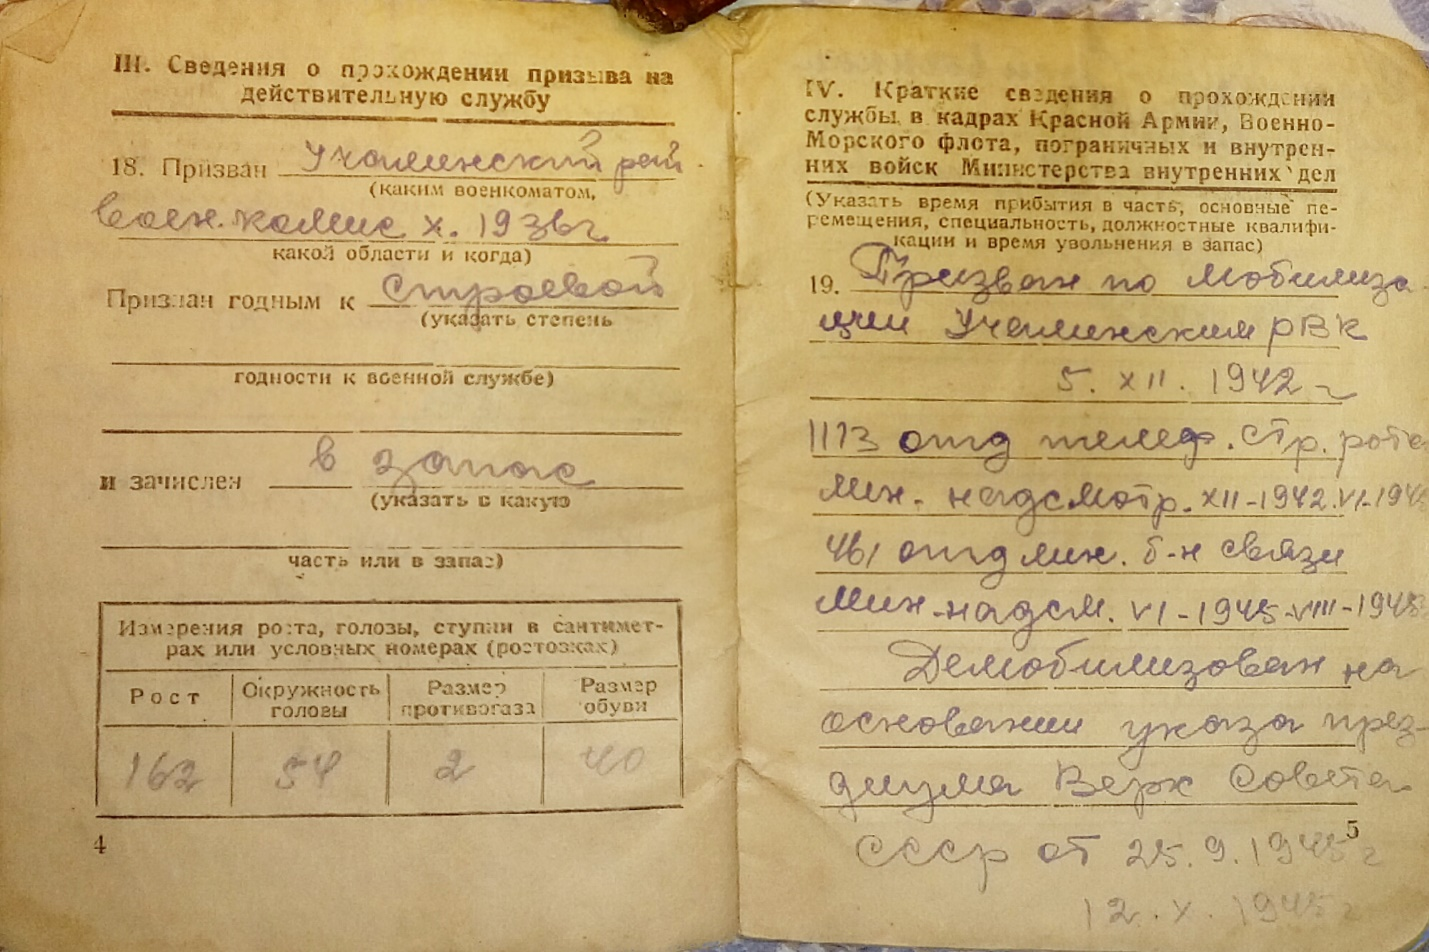 III. Сведения о прохождении призыва на
действительную службу
18. Призван Учалинский рай
(каким военкоматом,
воен.комис X. 1936г
какой области и когда)
Признан годным к Строевой
(указать степень
годности к военной службе)
и зачислен в запас
(указать в какую
часть или в запас)
Измерения роста, головы, ступни в сантимет-
рах или условных номерах (ростовках)
Рост Окружность головы Размер противогаза Размер обуви
162 54 2 40
4
IV. Краткие сведения о прохождении
службы в кадрах Красной Армии, Военно-
Морского флота, пограничных и внутрен-
них войск Министерства внутренних дел
(Указать время прибытия в часть, основные пе-
ремещения, специальность, должностные квалифи-
кации и время увольнения в запас)
19. Призван по мобилиза
ции Учалинским РВК
5. XII. 1942 г
1113 отд телеф. стр. рота
лин. надсмотр. XII-1942. VI-194
461 отд лин. б-н связи
лин-надсм. VI-1945-VIII-1945
Демобилизован на
основании указа през-
диума Верх Совета
5
СССР от 25.9.1945 г
12.X.1945 г